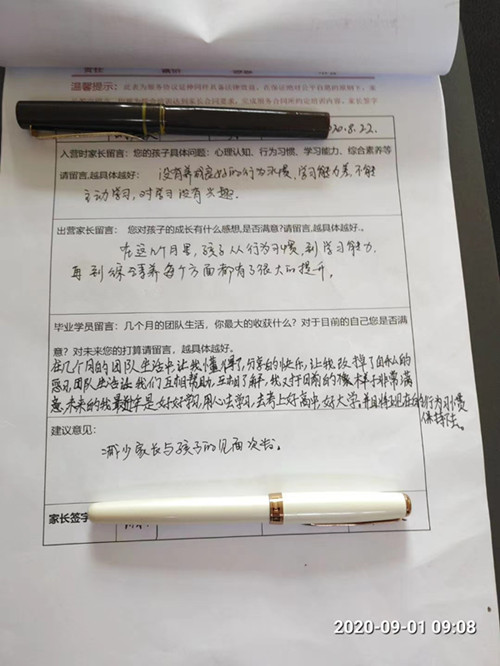 温馨提示：
2020.8.22.
入营时家长留言：您的孩子具体问题：心理认知、行为习惯、学习能力、综合素养等
请留言,越具体越好： 没有养成良好的行为习惯、学习能力差,不能
主动学习，对学习没有兴趣.
出营家长留言： 您对孩子的成长有什么感想,是否满意?请留言,越具体越好.。
在这几个月里，孩子从行为习惯,到学习能力
再到综合素养每个方面都有了很大的提升。
毕业学员留言：几个月的团队生活，你最大的收获什么？对于目前的自己您是否满
意？对未来您的打算请留言，越具体越好。
在几个月的团队生活中让我懂得了,分享的快乐,让我改掉了自私的
恶习,团队生活让我们互相帮助,互相了解,我对目前的 样子非常满
意,未来的我 是好好学习,用心去学习,去考上好高中,好大学,并且将现在 的行为习惯
保持住。
建议意见：
减少家长与孩子的见面次数。
家长签字
2020-09-01 09:08